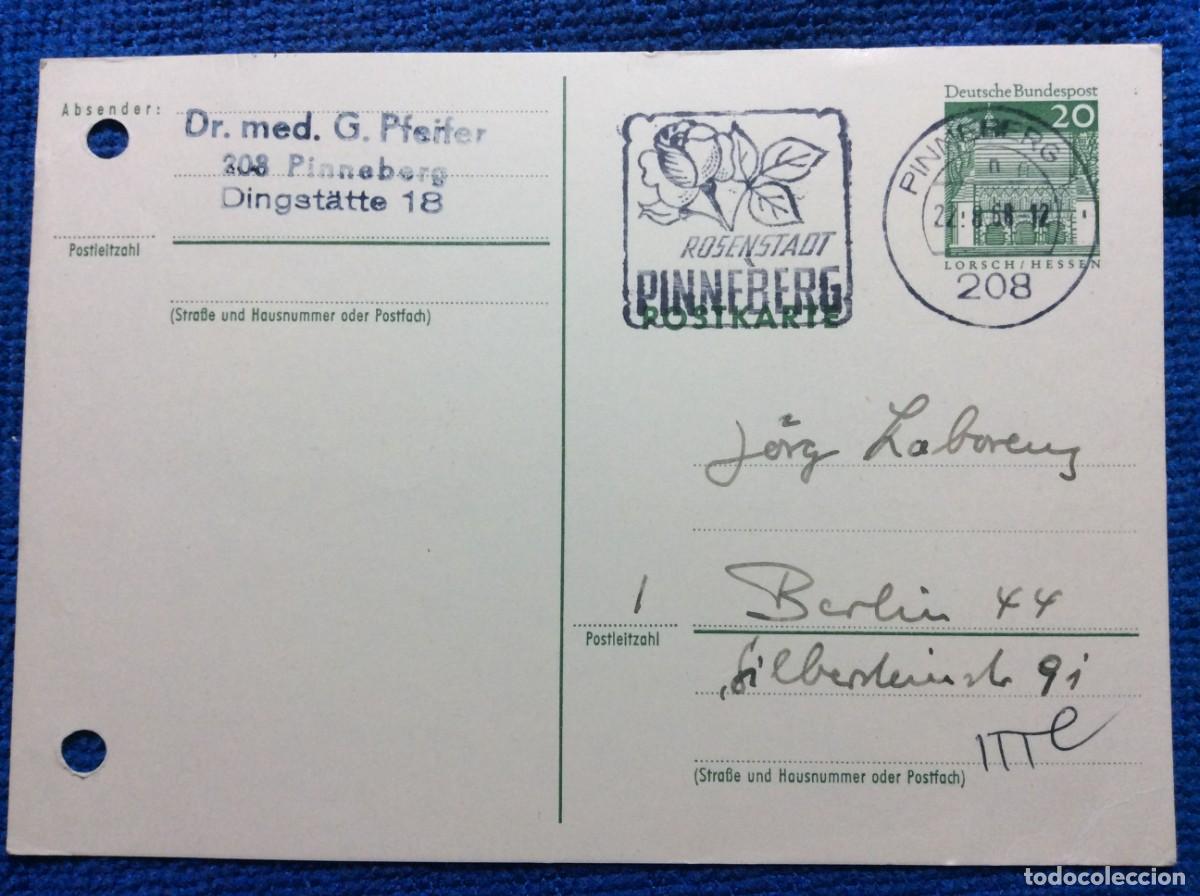 Absender:
Dr. med. G. Pfeifer
208 Pinneberg
Dingstätte 18
Postleitzahl
(Straße und Hausnummer oder Postfach)
ROSENSTADT
PINNEBERG
POSTKARTE
Deutsche Bundespost
20
LORSCH/HESSEN
PINNEBERG
n
22.8.68-12
208
Jörg Laborenz
1 Berlin 44
Postleitzahl
Silbersteinstr 91
(Straße und Hausnummer oder Postfach)
todocoleccion